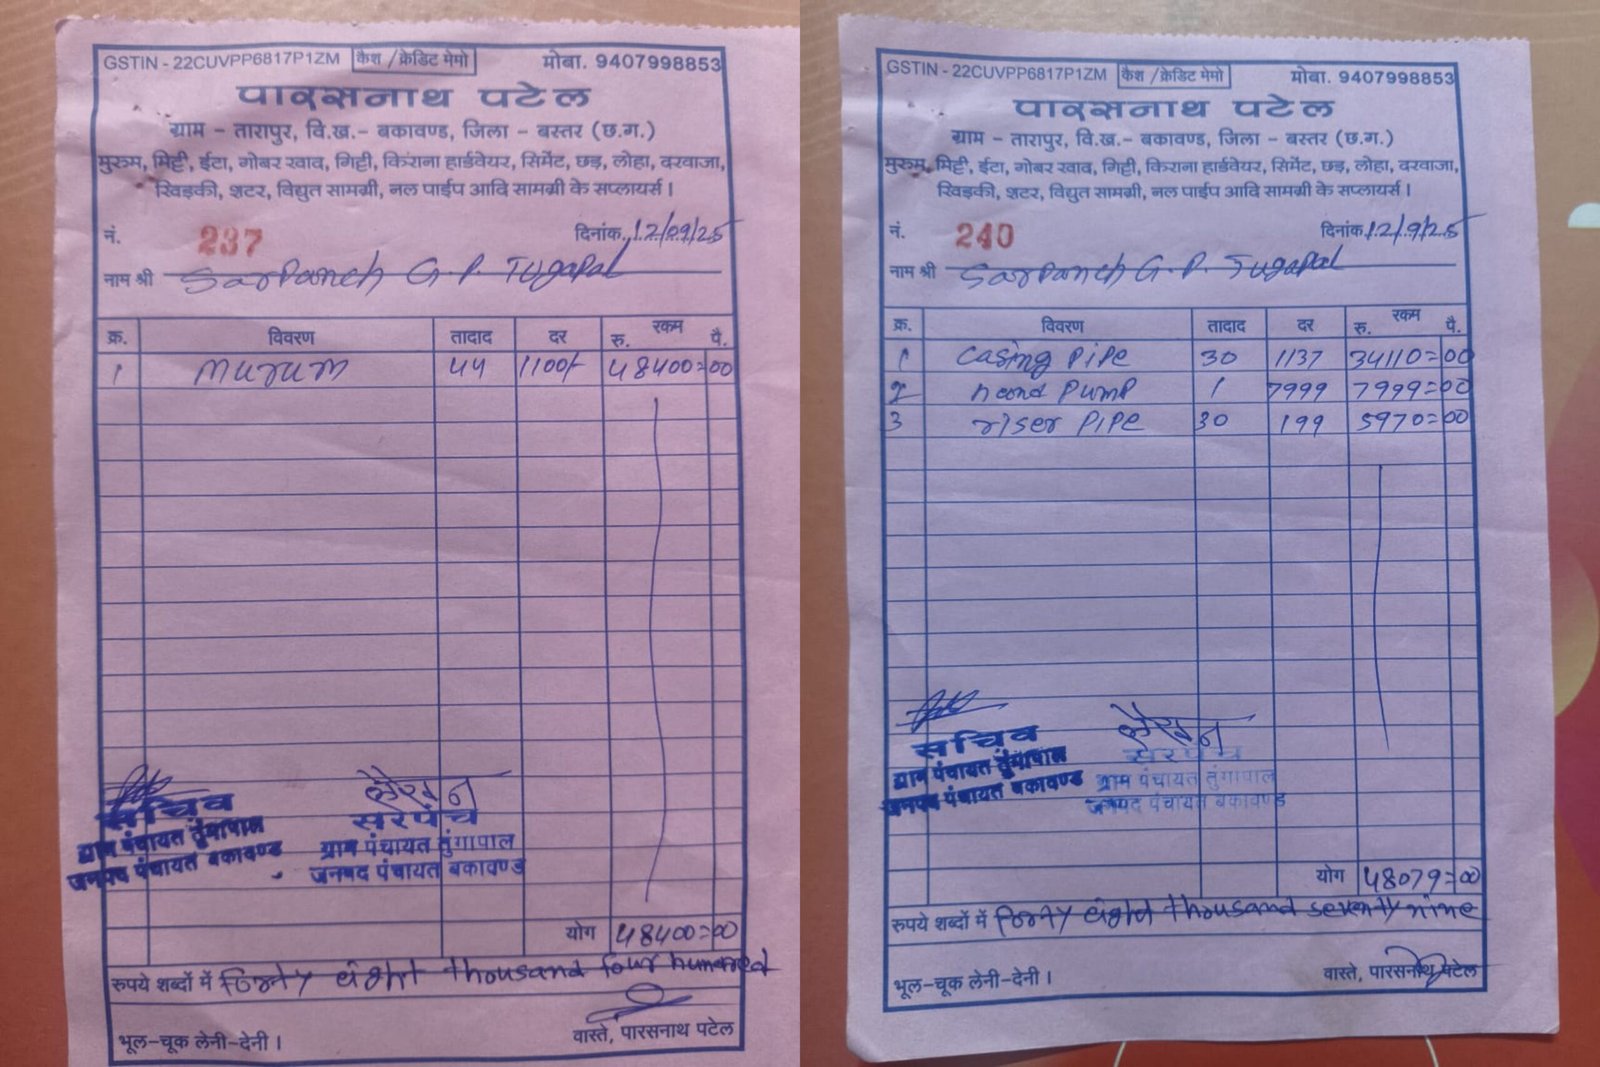 GSTIN - 22CUVPP6817P1ZM कैश / क्रेडिट मेमो मोबा. 9407998853
पारसनाथ पटेल
ग्राम - तारापुर, वि.ख.- बकावण्ड, जिला - बस्तर (छ.ग.)
मुरुम, मिट्टी, ईटा, गोबर खाद, गिट्टी, किराना हार्डवेयर, सिमेंट, छड़, लोहा, दरवाजा,
खिड़की, शटर, विद्युत सामग्री, नल पाईप आदि सामग्री के सप्लायर्स ।
नं. 237 दिनांक 12/09/25
नाम श्री Sarpanch G.P. Tugapal
क्र. विवरण तादाद दर रकम रु. पै.
1 murum 44 1100/- 48400=00
सचिव
ग्राम पंचायत तुंगापाल
जनपद पंचायत बकावण्ड
सरपंच
ग्राम पंचायत तुंगापाल
जनपद पंचायत बकावण्ड
योग 48400=00
रुपये शब्दों में forty eight thousand four hundred
भूल-चूक लेनी-देनी । वास्ते, पारसनाथ पटेल
GSTIN - 22CUVPP6817P1ZM कैश / क्रेडिट मेमो मोबा. 9407998853
पारसनाथ पटेल
ग्राम - तारापुर, वि.ख.- बकावण्ड, जिला - बस्तर (छ.ग.)
मुरुम, मिट्टी, ईटा, गोबर खाद, गिट्टी, किराना हार्डवेयर, सिमेंट, छड़, लोहा, दरवाजा,
खिड़की, शटर, विद्युत सामग्री, नल पाईप आदि सामग्री के सप्लायर्स ।
नं. 240 दिनांक 12/9/25
नाम श्री Sarpanch G.P. Tugapal
क्र. विवरण तादाद दर रकम रु. पै.
1 casing pipe 30 1137 34110=00
2 hand pump 1 7999 7999=00
3 riser pipe 30 199 5970=00
सचिव
ग्राम पंचायत तुंगापाल
जनपद पंचायत बकावण्ड
सरपंच
ग्राम पंचायत तुंगापाल
जनपद पंचायत बकावण्ड
योग 48079=00
रुपये शब्दों में forty eight thousand seventy nine
भूल-चूक लेनी-देनी । वास्ते, पारसनाथ पटेल